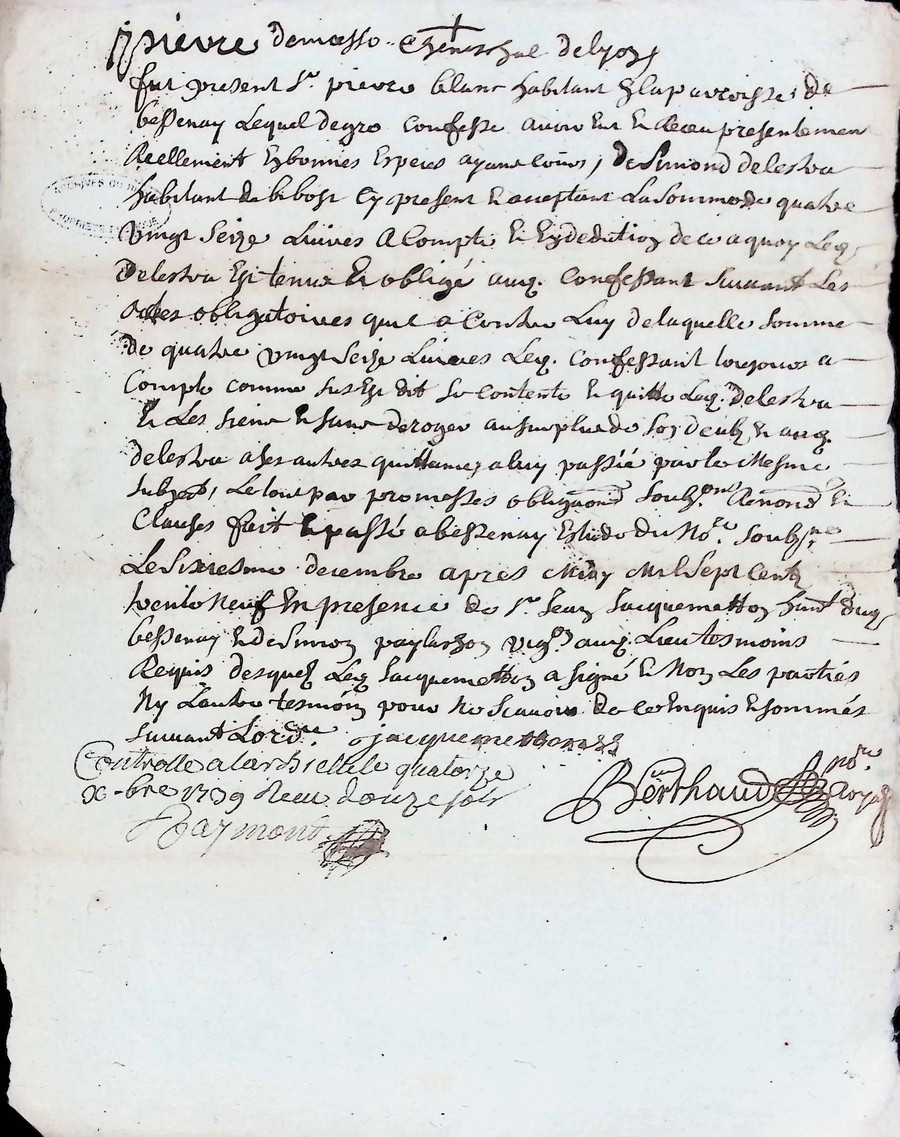 pierre de masso Seneschal de lyon
fut present Sr. pierre blanc habitant En la parroisse de
bessenay Lequel degre confesse avoir Eut Et Receu presentement
Reellement En bonnes Especes ayant Cours, de Simond delestra
habitant de bibost Cy present Et acceptant La Somme de quatre
vingt Seize Livres A Compte Et En deduction de ce a quoy Led.
delestra Est tenu Et obligé aud. Confessant Suivant Les
actes obligatoires quil a Contre Luy de laquelle Somme
de quatre vingt Seize Livres Led. confessant tousjours a
Compte comme sus Est dit Se contente Et quitte Led. delestra
Et Les Siens Et Sans deroger au surplus de Son deub Et aud.
delestra a Ses autres quittances a luy passée par le Mesme
Subject, Le tout par promesses obligaons Soubmons Renonons Et
Clauses fait Et passé a bessenay Estude du No.re Soubs.né
Le Sixiesme decembre apres Midy Mil Sept Cents
trente Neuf En presence de Sr. Jean Jacquemetton hant dud.
bessenay Et de Simon vign. aud. Lieu tesmoins
Requis desquels Led. Jacquemetton a signé Et Non Les parties
Ny L'autre tesmoin pour Ne Scavoir de ce Enquis Et sommés
suivant Lord.ce jacquemetton
Controlle a larbresle le quatorze
x-bre 1739 Receu douze sols
Raymont
Berthaud no.re Royal